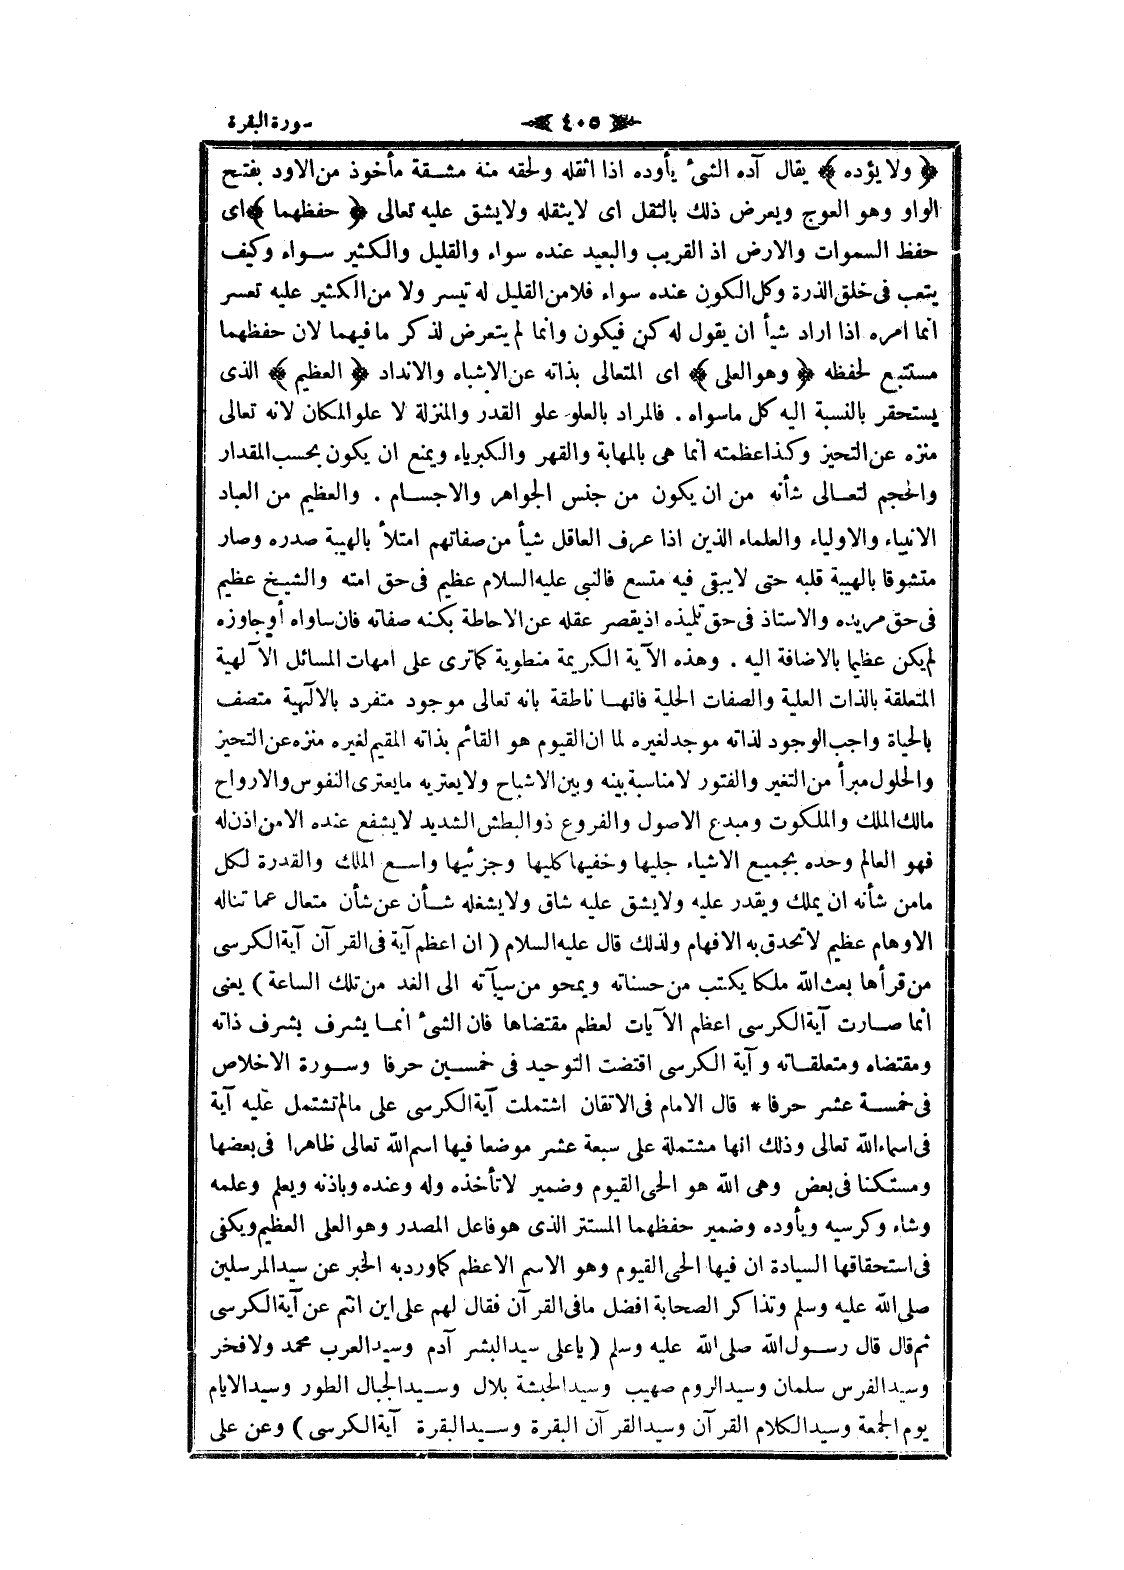 سورة البقرة ٤٠٥
﴿ ولا يؤده ﴾ يقال آده الشئ يأوده اذا اثقله ولحقه منه مشقة مأخوذ من الاود بفتح
الواو وهو العوج ويعرض ذلك بالثقل اى لا يثقله ولا يشق عليه تعالى ﴿ حفظهما ﴾ اى
حفظ السموات والارض اذ القريب والبعيد عنده سواء والقليل والكثير سواء وكيف
يتعب فى خلق الذرة وكل الكون عنده سواء فلا من القليل له تيسر ولا من الكثير عليه تعسر
انما امره اذا اراد شيأ ان يقول له كن فيكون وانما لم يتعرض لذكر ما فيهما لان حفظهما
مستتبع لحفظه ﴿ وهو العلى ﴾ اى المتعالى بذاته عن الاشباه والانداد ﴿ العظيم ﴾ الذى
يستحقر بالنسبة اليه كل ماسواه . فالمراد بالعلو علو القدر والمنزلة لا علو المكان لانه تعالى
منزه عن التحيز وكذا عظمته انما هى بالمهابة والقهر والكبرياء ويمنع ان يكون بحسب المقدار
والحجم لتعالى شأنه من ان يكون من جنس الجواهر والاجسام . والعظيم من العباد
الانبياء والاولياء والعلماء الذين اذا عرف العاقل شيأ من صفاتهم امتلأ بالهيبة صدره وصار
متشوقا بالهيبة قلبه حتى لا يبقى فيه متسع فالنبى عليه السلام عظيم فى حق امته والشيخ عظيم
فى حق مريده والاستاذ فى حق تلميذه اذ يقصر عقله عن الاحاطة بكنه صفاته فان ساواه أو جاوزه
لم يكن عظيما بالاضافة اليه . وهذه الآية الكريمة منطوية كما ترى على امهات المسائل الآلهية
المتعلقة بالذات العلية والصفات الجلية فانها ناطقة بانه تعالى موجود متفرد بالالٓهية متصف
بالحياة واجب الوجود لذاته موجد لغيره لما ان القيوم هو القائم بذاته المقيم لغيره منزه عن التحيز
والحلول مبرأ من التغير والفتور لا مناسبة بينه وبين الاشباح ولا يعتريه ما يعترى النفوس والارواح
مالك الملك والملكوت ومبدع الاصول والفروع ذو البطش الشديد لا يشفع عنده الا من اذن له
فهو العالم وحده بجميع الاشياء جليها وخفيها كليها وجزئيها واسع الملك والقدرة لكل
ما من شأنه ان يملك ويقدر عليه ولا يشق عليه شاق ولا يشغله شأن عن شأن متعال عما تناله
الاوهام عظيم لا تحدق به الافهام ولذلك قال عليه السلام ( ان اعظم آية فى القرآن آية الكرسى
من قرأها بعث الله ملكا يكتب من حسناته ويمحو من سيآته الى الغد من تلك الساعة ) يعنى
انما صارت آية الكرسى اعظم الآيات لعظم مقتضاها فان الشئ انما يشرف بشرف ذاته
ومقتضاه ومتعلقاته وآية الكرسى اقتضت التوحيد فى خمسين حرفا وسورة الاخلاص
فى خمسة عشر حرفا * قال الامام فى الاتقان اشتملت آية الكرسى على مالم تشتمل عليه آية
فى اسماء الله تعالى وذلك انها مشتملة على سبعة عشر موضعا فيها اسم الله تعالى ظاهرا فى بعضها
ومستكنا فى بعض وهى الله هو الحى القيوم وضمير لا تأخذه وله وعنده وباذنه ويعلم وعلمه
وشاء وكرسيه ويأوده وضمير حفظهما المستتر الذى هو فاعل المصدر وهو العلى العظيم ويكفى
فى استحقاقها السيادة ان فيها الحى القيوم وهو الاسم الاعظم كما ورد به الخبر عن سيد المرسلين
صلى الله عليه وسلم وتذاكر الصحابة افضل ما فى القرآن فقال لهم على اين انتم عن آية الكرسى
ثم قال قال رسول الله صلى الله عليه وسلم ( ياعلى سيد البشر آدم وسيد العرب محمد ولا فخر
وسيد الفرس سلمان وسيد الروم صهيب وسيد الحبشة بلال وسيد الجبال الطور وسيد الايام
يوم الجمعة وسيد الكلام القرآن وسيد القرآن البقرة وسيد البقرة آية الكرسى ) وعن على